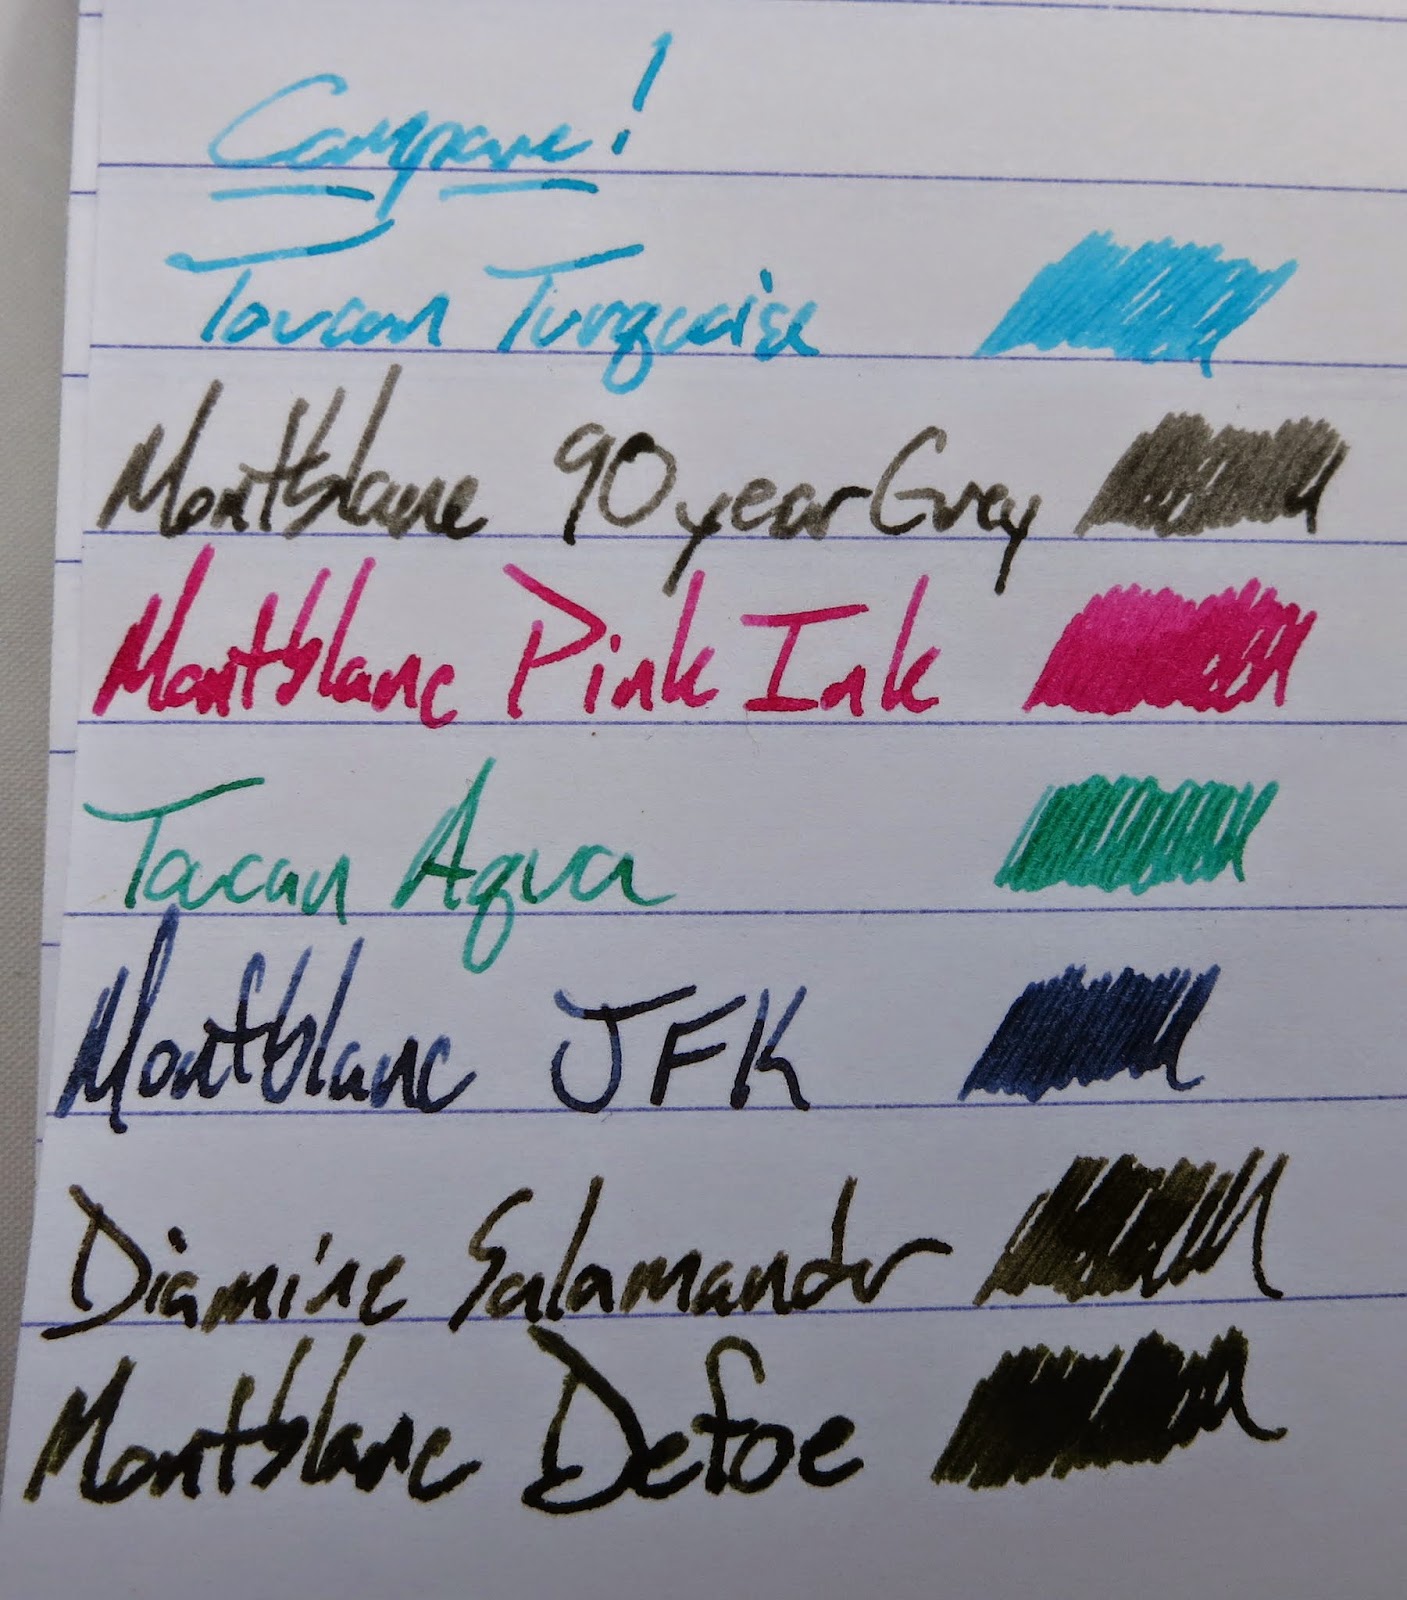 Compare!
Toucan Turquoise
Montblanc 90 year Grey
Montblanc Pink Ink
Toucan Aqua
Montblanc JFK
Diamine Salamander
Montblanc Defoe